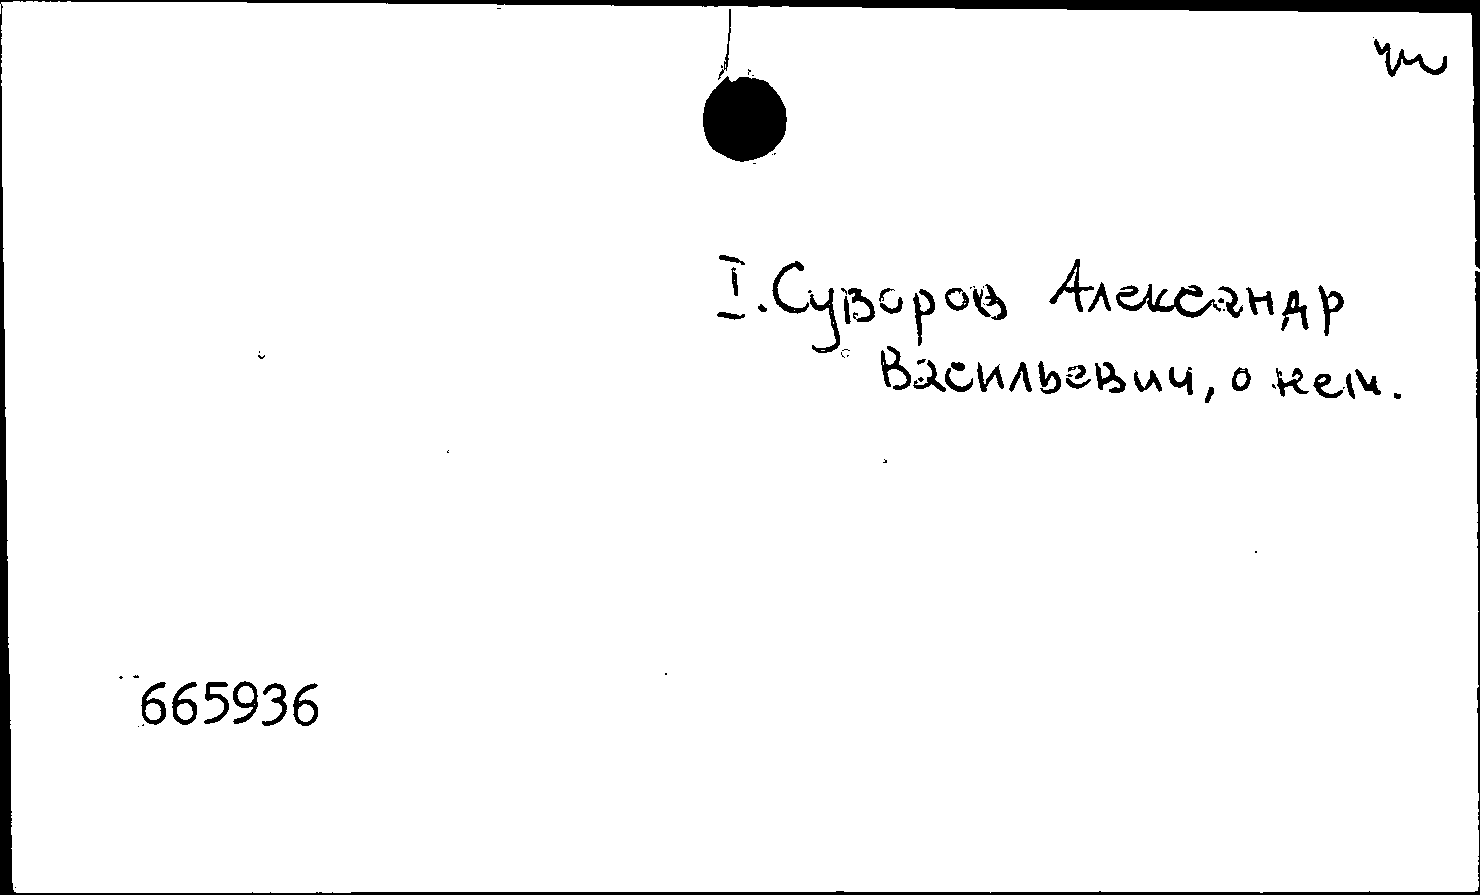 I. Суворов Александр
Васильевич, о нем.
665936